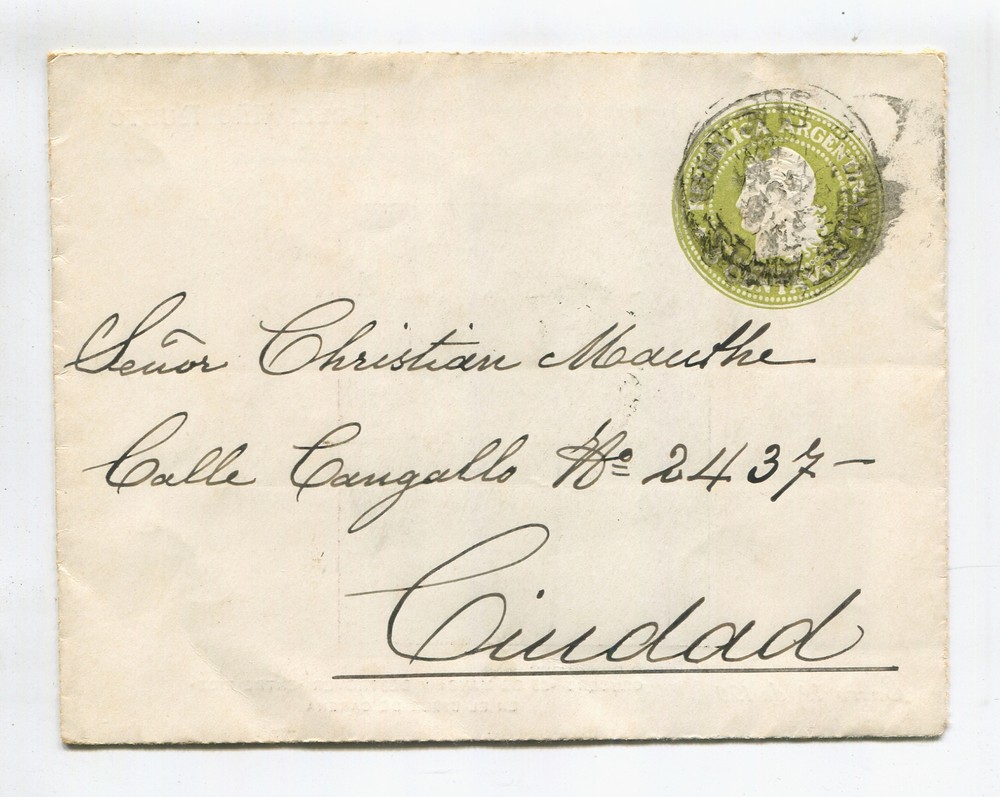 REPUBLICA ARGENTINA
CENTAVOS
Señor Christian Mauthe
Calle Cangallo Nº 2437-
Ciudad